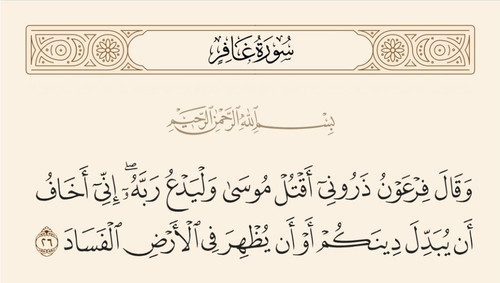 سُورَةُ غَافِرٍ
بِسۡمِ ٱللَّهِ ٱلرَّحۡمَٰنِ ٱلرَّحِيمِ
وَقَالَ فِرۡعَوۡنُ ذَرُونِيٓ أَقۡتُلۡ مُوسَىٰ وَلۡيَدۡعُ رَبَّهُۥٓۖ إِنِّيٓ أَخَافُ
أَن يُبَدِّلَ دِينَكُمۡ أَوۡ أَن يُظۡهِرَ فِي ٱلۡأَرۡضِ ٱلۡفَسَادَ ٢٦